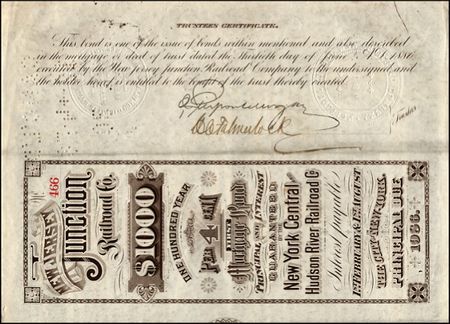 TRUSTEES CERTIFICATE.
This bond is one of the issue of bonds within mentioned and also described
in the mortgage or deed of trust dated the thirtieth day of June A.D. 1886
executed by the New Jersey Junction Railroad Company to the undersigned and
the holder hereof is entitled to the benefit of the trust thereby created
J. Pierpont Morgan
Trustees
466
NEW JERSEY
Junction
Railroad Co.
$1000
ONE HUNDRED YEAR
PER 4 CENT
FIRST
Mortgage Bond
PRINCIPAL AND INTEREST
GUARANTEED
New York Central
Hudson River Railroad Co
Interest payable
FEBRUARY & 1 AUGUST
THE CITY OF NEW YORK.
PRINCIPAL DUE
1986.